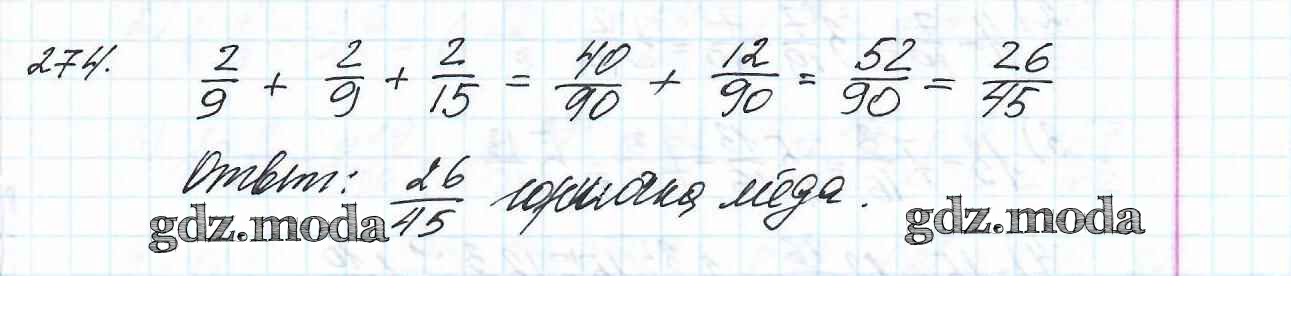 274. 2/9 + 2/9 + 2/15 = 40/90 + 12/90 = 52/90 = 26/45
Ответ: 26/45 горшочка мёда.
gdz.moda gdz.moda